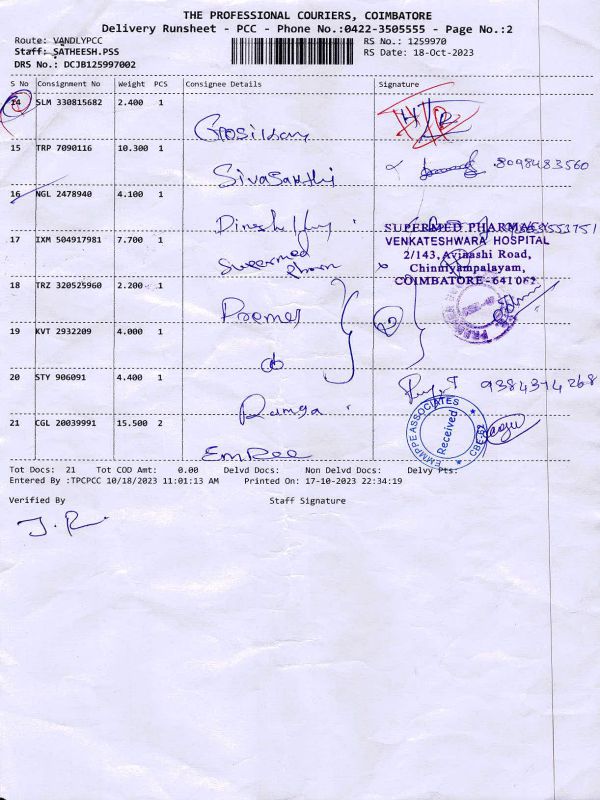 THE PROFESSIONAL COURIERS, COIMBATORE
Delivery Runsheet - PCC - Phone No.:0422-3505555 - Page No.:2
Route: VANDLYPCC RS No.: 1259970
Staff: SATHEESH.PSS RS Date: 18-Oct-2023
DRS No.: DCJB125997002
S No Consignment No Weight PCS Consignee Details Signature
14 SLM 330815682 2.400 1
15 TRP 7090116 10.300 1 8098483560
Sivasakthi
16 NGL 2478940 4.100 1
SUPERMED PHARMACY
VENKATESHWARA HOSPITAL
17 IXM 504917981 7.700 1 Supermed
Pharm
2/143, Avinashi Road,
Chinniyampalayam,
COIMBATORE-641 062
18 TRZ 320525960 2.200 1
Premer
19 KVT 2932209 4.000 1
do
20 STY 906091 4.400 1 9384374268
Ramga
21 CGL 20039991 15.500 2
EMMPPE ASSOCIATES
Received
CBE-62
EmRee
Tot Docs: 21 Tot COD Amt: 0.00 Delvd Docs: Non Delvd Docs: Delvy Pts:
Entered By :TPCPCC 10/18/2023 11:01:13 AM Printed On: 17-10-2023 22:34:19
Verified By Staff Signature
J. R.